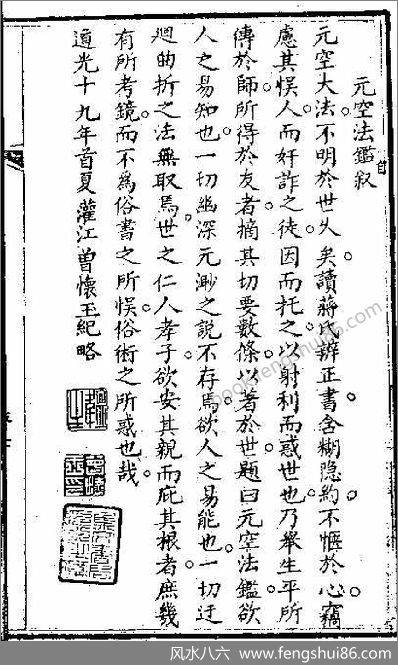 元空法鑑叙
元空大法不明於世久矣讀蔣氏辨正書含糊隐約不愜於心竊
慮其悮人而奸詐之徒因而托之以射利而惑世也乃舉生平所
傳於師所得於友者摘其切要數條以著於世題曰元空法鑑欲
人之易知也一切幽深元渺之説不存焉欲人之易能也一切迂
迴曲折之法無取焉世之仁人孝子欲安其親而庇其根者庶幾
有所考鏡而不為俗書之所悮俗術之所惑也哉
道光十九年首夏灌江曾懷玉紀略
bookfengshui86.com
风水八六 www.fengshui86.com